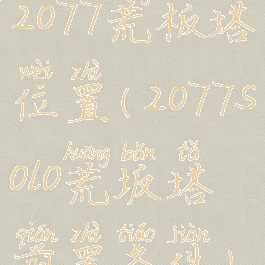 2077荒板塔
wèi zhì
位置(2077S
huāng bǎn tǎ
olo荒坂塔
qián zhì tiáo jiàn
前置条件)